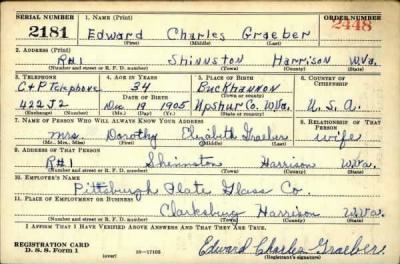 SERIAL NUMBER 1. NAME (Print) ORDER NUMBER
2181 Edward Charles Graeber 2448
(First) (Middle) (Last)
2. ADDRESS (Print)
R#1 Shinnston Harrison W.Va.
(Number and street or R. F. D. number) (Town) (County) (State)
3. TELEPHONE 4. AGE IN YEARS 5. PLACE OF BIRTH 6. COUNTRY OF CITIZENSHIP
C+P Telephone 34 Buckhannon
DATE OF BIRTH (Town or county)
422J2 Dec 19 1905 Upshur Co. W.Va. U.S.A.
(Exchange) (Number) (Mo.) (Day) (Yr.) (State or country)
7. NAME OF PERSON WHO WILL ALWAYS KNOW YOUR ADDRESS 8. RELATIONSHIP OF THAT PERSON
Mrs. Dorothy Elizabeth Graeber wife
(Mr., Mrs., Miss) (First) (Middle) (Last)
9. ADDRESS OF THAT PERSON
R#1 Shinnston Harrison W.Va.
(Number and street or R. F. D. number) (Town) (County) (State)
10. EMPLOYER'S NAME
Pittsburgh Plate Glass Co.
11. PLACE OF EMPLOYMENT OR BUSINESS
Clarksburg Harrison W.Va.
(Number and street or R. F. D. number) (Town) (County) (State)
I AFFIRM THAT I HAVE VERIFIED ABOVE ANSWERS AND THAT THEY ARE TRUE.
REGISTRATION CARD
D. S. S. Form 1 (over) 16—17105 Edward Charles Graeber
(Registrant's signature)